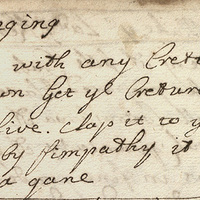 nging
with any Cretu
wn Get ye Creture
live. clap it to y
by simpathy it
a gane